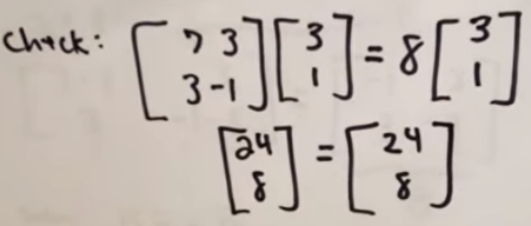 Check: [7 3
3 -1] [3
1] = 8 [3
1]
[24
8] = [24
8]